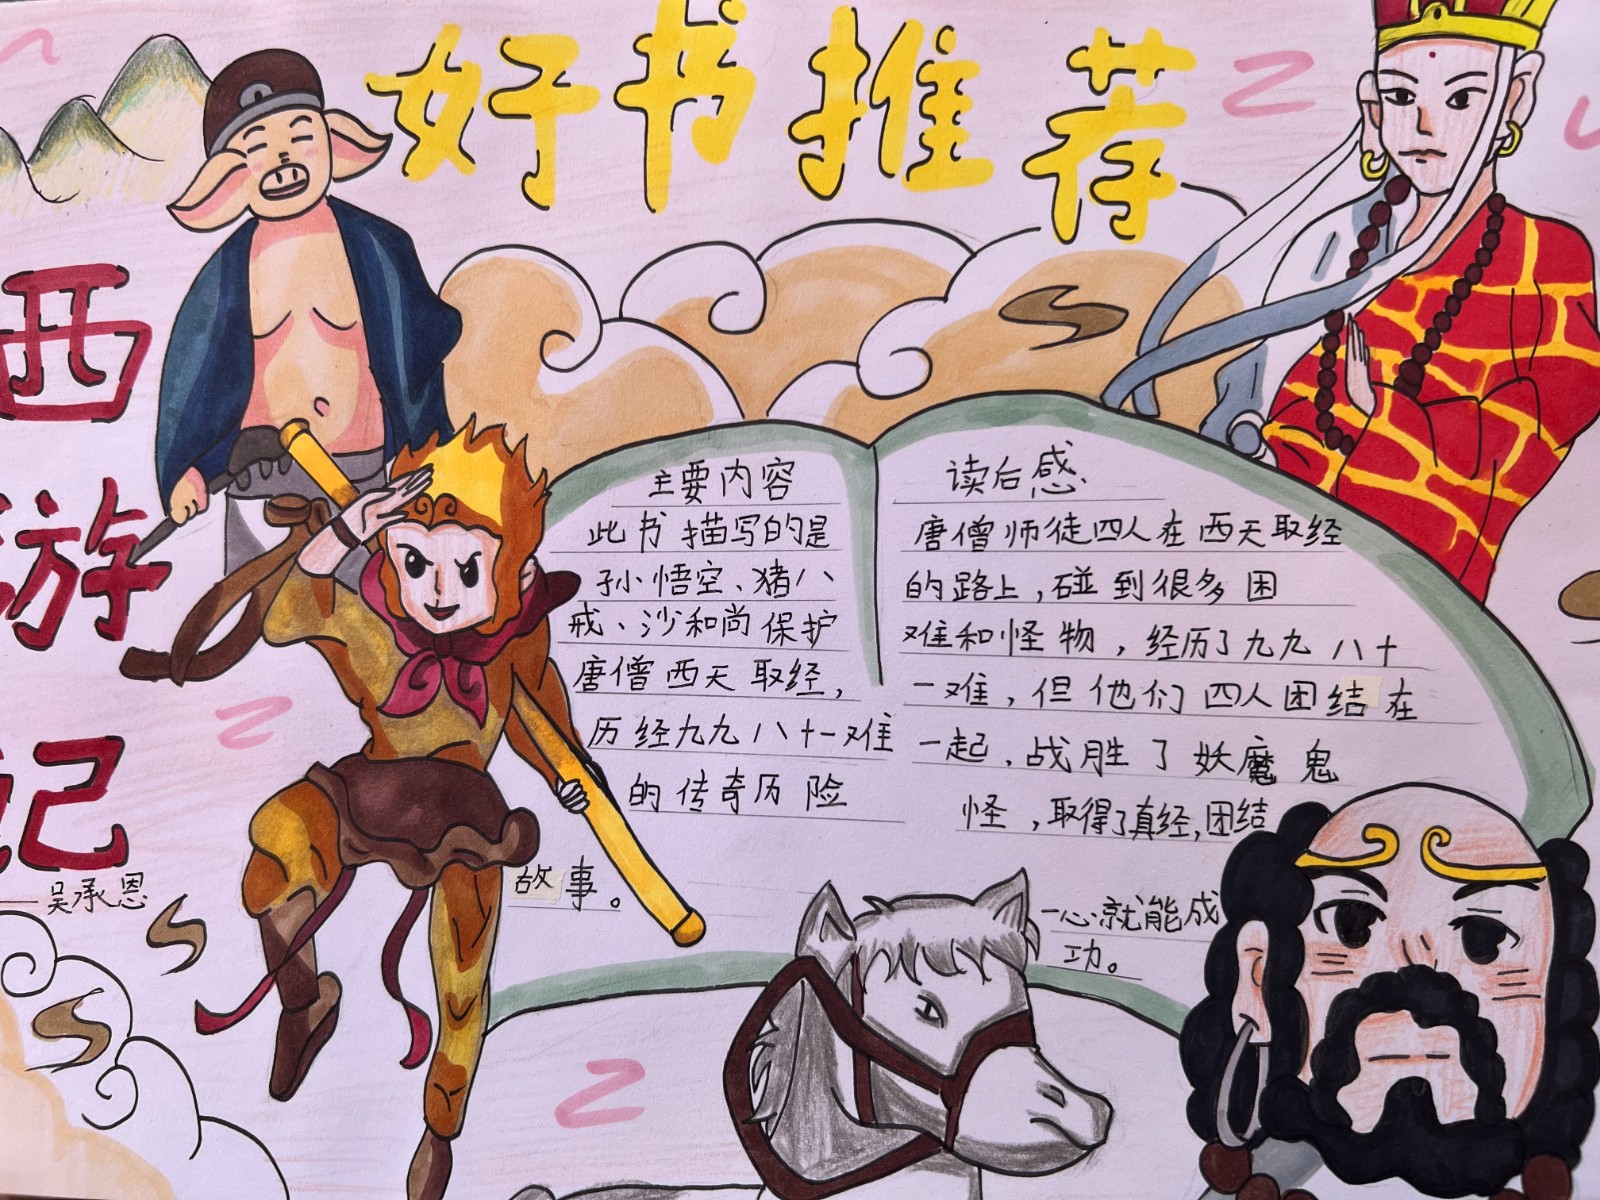 好书推荐
西游记
——吴承恩
主要内容
此书描写的是
孙悟空、猪八
戒、沙和尚保护
唐僧西天取经，
历经九九八十一难
的传奇历险
故事。
读后感
唐僧师徒四人在西天取经
的路上，碰到很多困
难和怪物，经历了九九八十
一难，但他们四人团结在
一起，战胜了妖魔鬼
怪，取得了真经，团结
一心就能成
功。